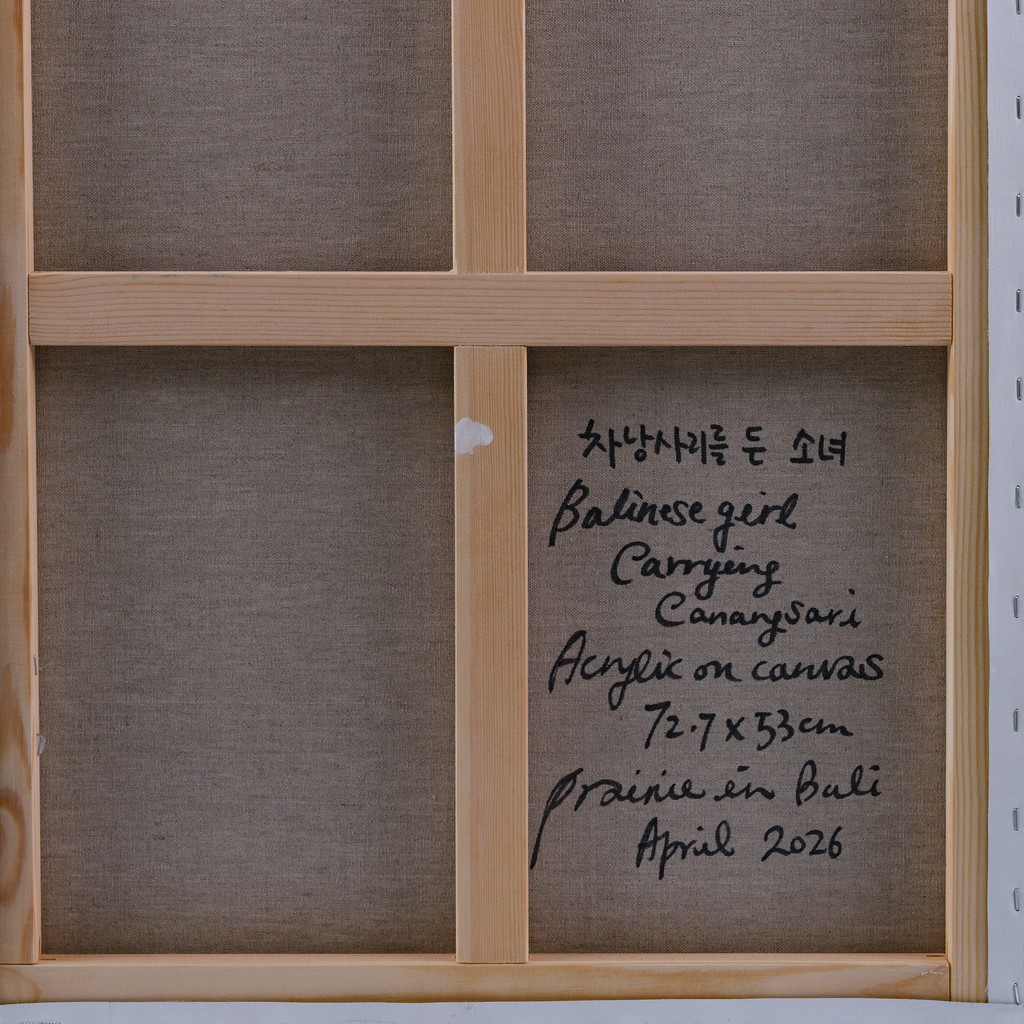 차낭사리를 든 소녀
Balinese girl
Carrying
Canangsari
Acrylic on canvas
72.7 x 53cm
prairie in Bali
April 2026